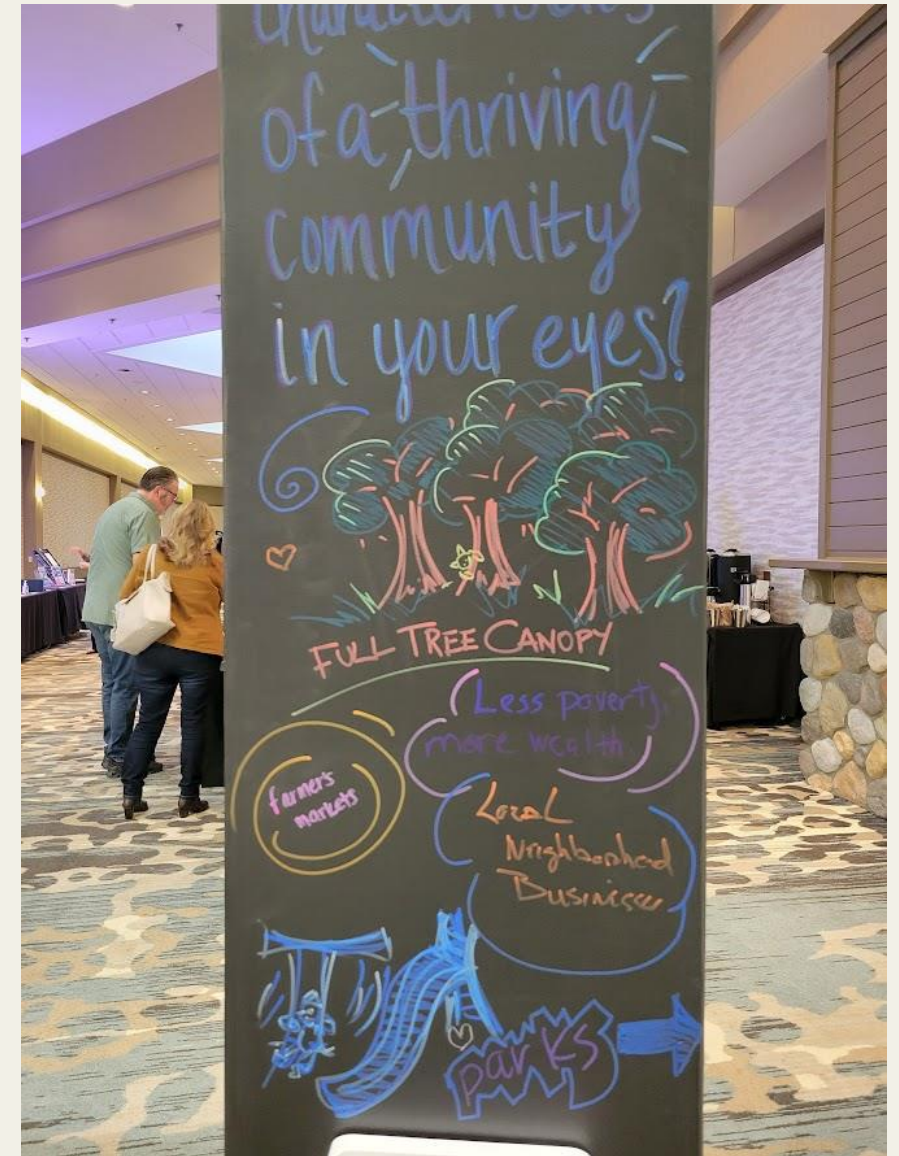 characteristics
of a thriving
community
in your eyes?
FULL TREE CANOPY
Less poverty,
more wealth.
farmer's
markets
Local
Neighborhood
Businesses
parks